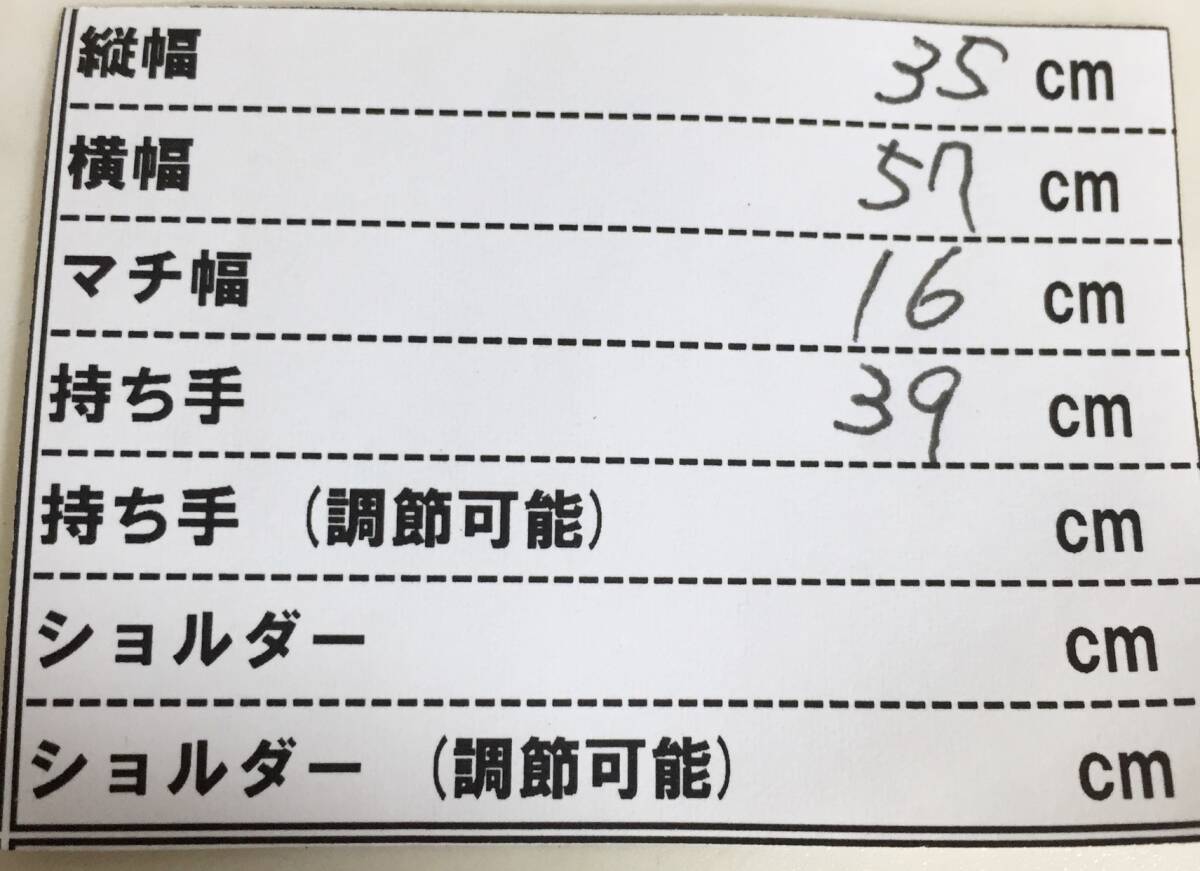 縦幅 35 cm
横幅 57 cm
マチ幅 16 cm
持ち手 39 cm
持ち手 (調節可能) cm
ショルダー cm
ショルダー (調節可能) cm